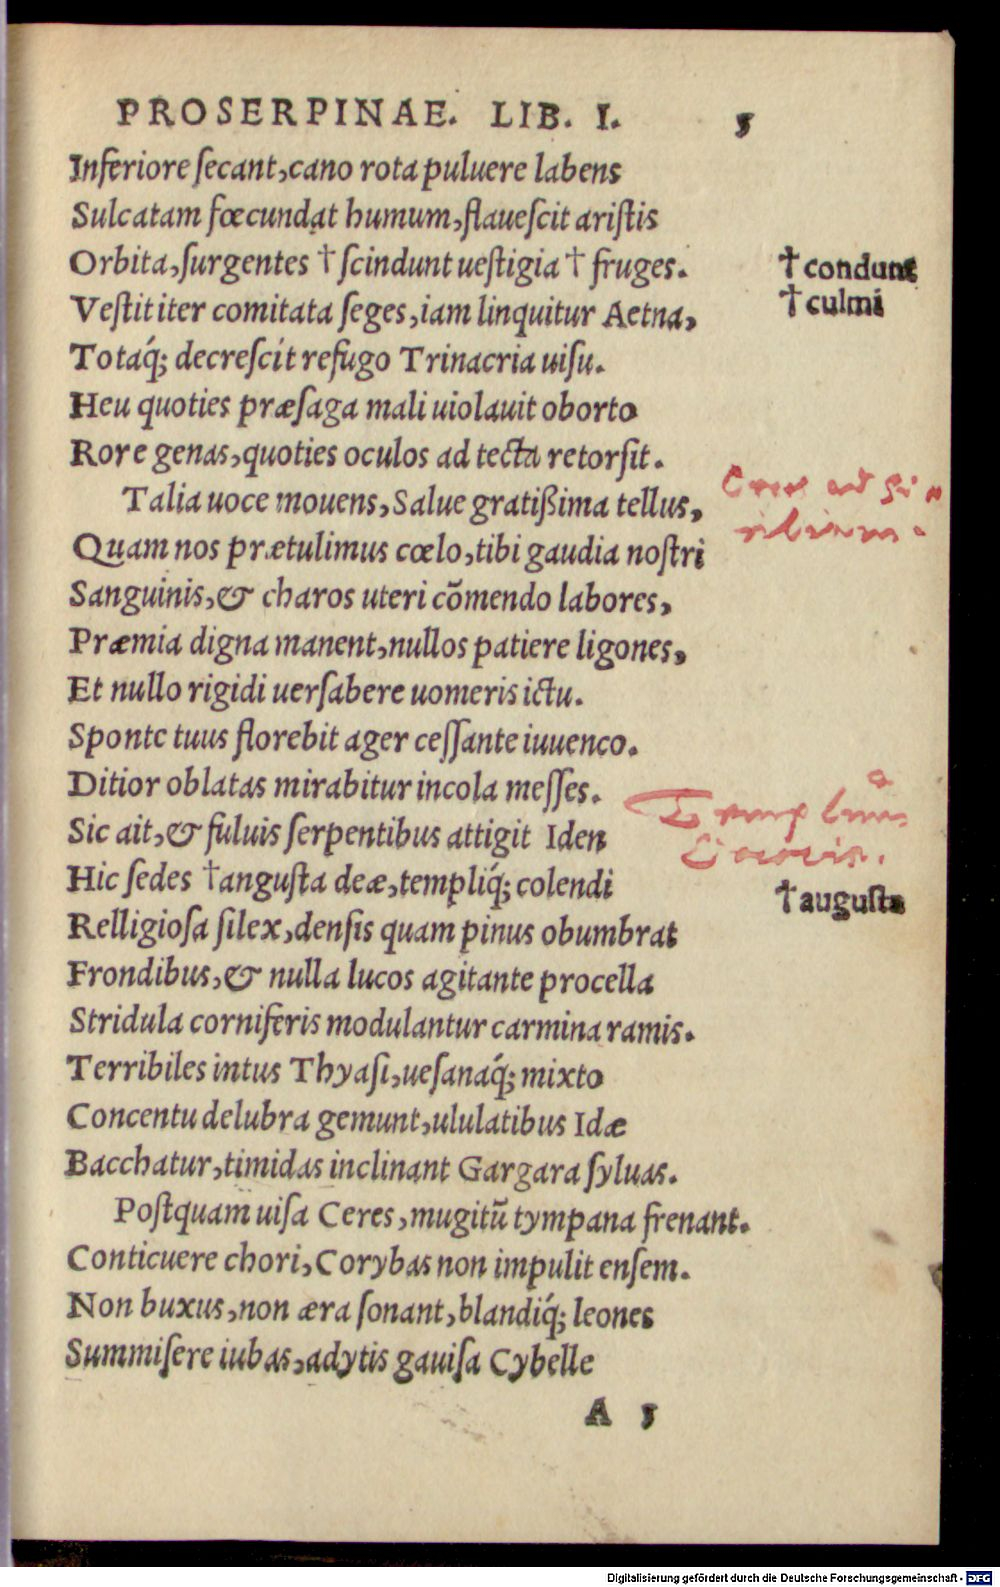 PROSERPINAE. LIB. I. 5
Inferiore ſecant, cano rota puluere labens
Sulcatam fœcundat humum, flaueſcit ariſtis
Orbita, ſurgentes † ſcindunt ueſtigia † fruges.
† condunt
† culmi
Veſtit iter comitata ſeges, iam linquitur Aetna,
Totaq́; decreſcit refugo Trinacria uiſu.
Heu quoties præſaga mali uiolauit oborto
Rore genas, quoties oculos ad tecta retorſit.
Talia uoce mouens, Salue gratißima tellus,
Quam nos prætulimus cœlo, tibi gaudia noſtri
Sanguinis, & charos uteri cōmendo labores,
Præmia digna manent, nullos patiere ligones,
Et nullo rigidi uerſabere uomeris ictu.
Sponte tuus florebit ager ceſſante iuuenco.
Ditior oblatas mirabitur incola meſſes.
Templum
Sic ait, & fuluis ſerpentibus attigit Iden
Hic ſedes †anguſta deæ, templiq́; colendi
†auguſta
Relligioſa ſilex, denſis quam pinus obumbrat
Frondibus, & nulla lucos agitante procella
Stridula corniferis modulantur carmina ramis.
Terribiles intus Thyaſi, ueſanaq́; mixto
Concentu delubra gemunt, ululatibus Idæ
Bacchatur, timidas inclinant Gargara ſyluas.
Poſtquam uiſa Ceres, mugitū tympana frenant.
Conticuere chori, Corybas non impulit enſem.
Non buxus, non æra ſonant, blandiq́; leones
Summiſere iubas, adytis gauiſa Cybelle
A 5
Digitalisierung gefördert durch die Deutsche Forschungsgemeinschaft - DFG